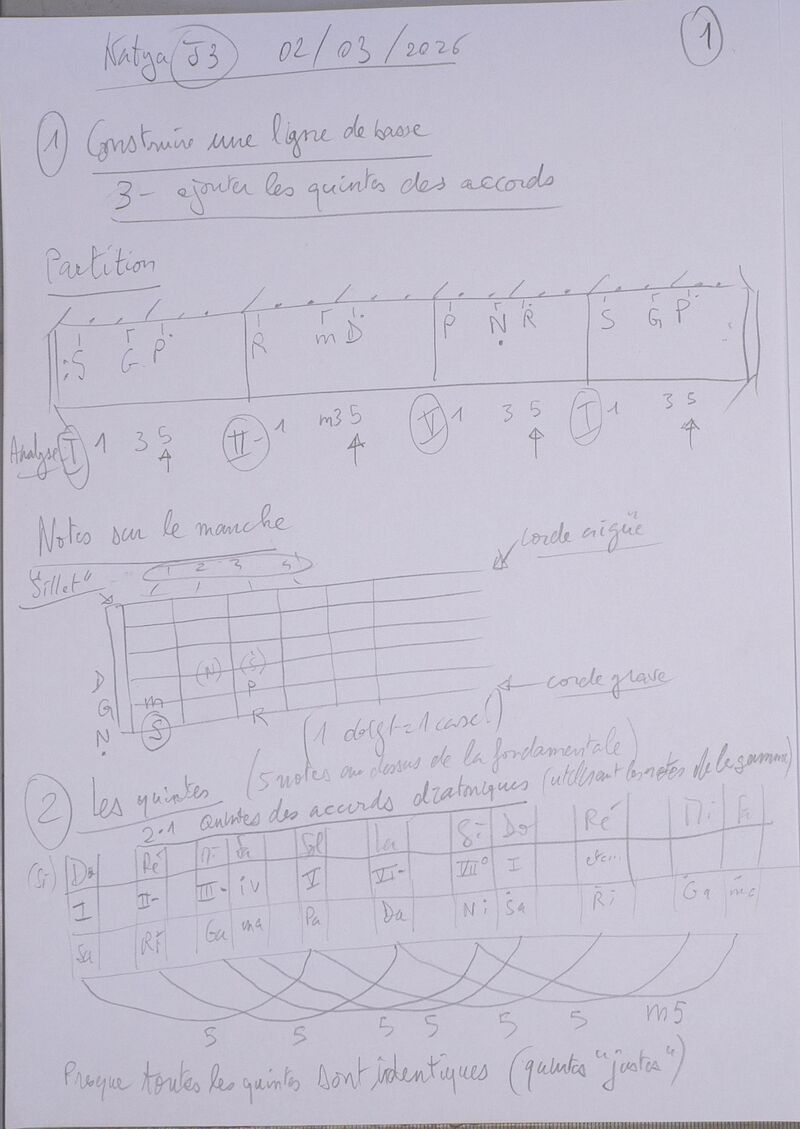 Katya J3 02/03/2026 1
1 Construire une ligne de basse
3- ajouter les quintes des accords
Partition
:S G P R m D P N R S G P :
Analyse I 1 3 5 II- 1 m3 5 V 1 3 5 I 1 3 5
Notes sur le manche
corde aigüe
"Sillet" 1 2 3 4
D (N) (S)
G m P
N S R
corde grave
(1 doigt = 1 case!)
2 Les quintes (5 notes au dessus de la fondamentale)
2.1 Quintes des accords diatoniques (utilisant les notes de la gamme)
(Si) Do Ré Mi Fa Sol La Si Do Ré Mi Fa
I II- III- IV V VI- VII° I etc...
Sa Ri Ga ma Pa Da Ni Sa Ri Ga ma
5 5 5 5 5 5 m5
Presque toutes les quintes sont identiques (quintes "justes")